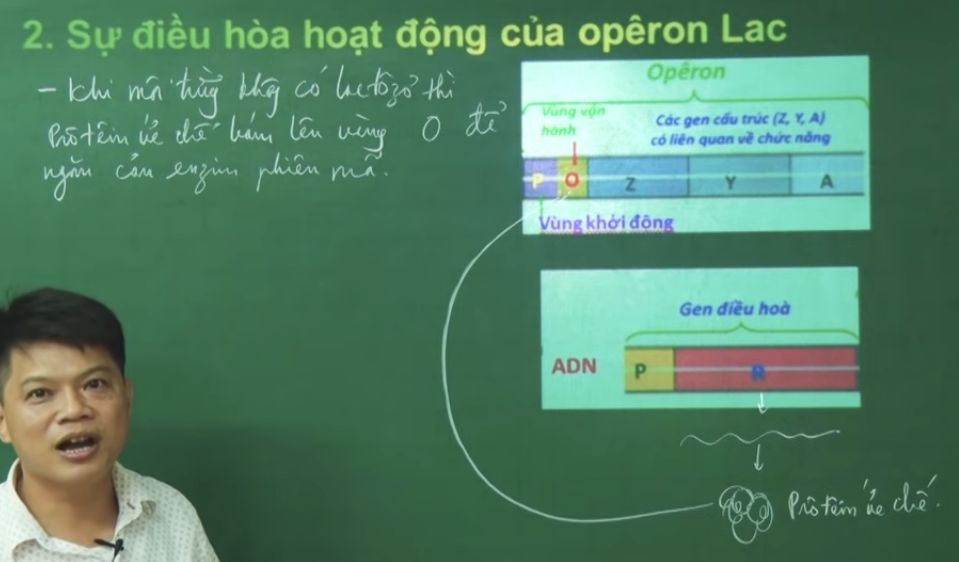 2. Sự điều hòa hoạt động của opêron Lac
- Khi môi trường không có lactôzơ thì
Prôtêin ức chế bám lên vùng O để
ngăn cản enzim phiên mã.
Opêron
Vùng vận
hành
Các gen cấu trúc (Z, Y, A)
có liên quan về chức năng
P O Z Y A
Vùng khởi động
Gen điều hoà
ADN P R
Prôtêin ức chế.